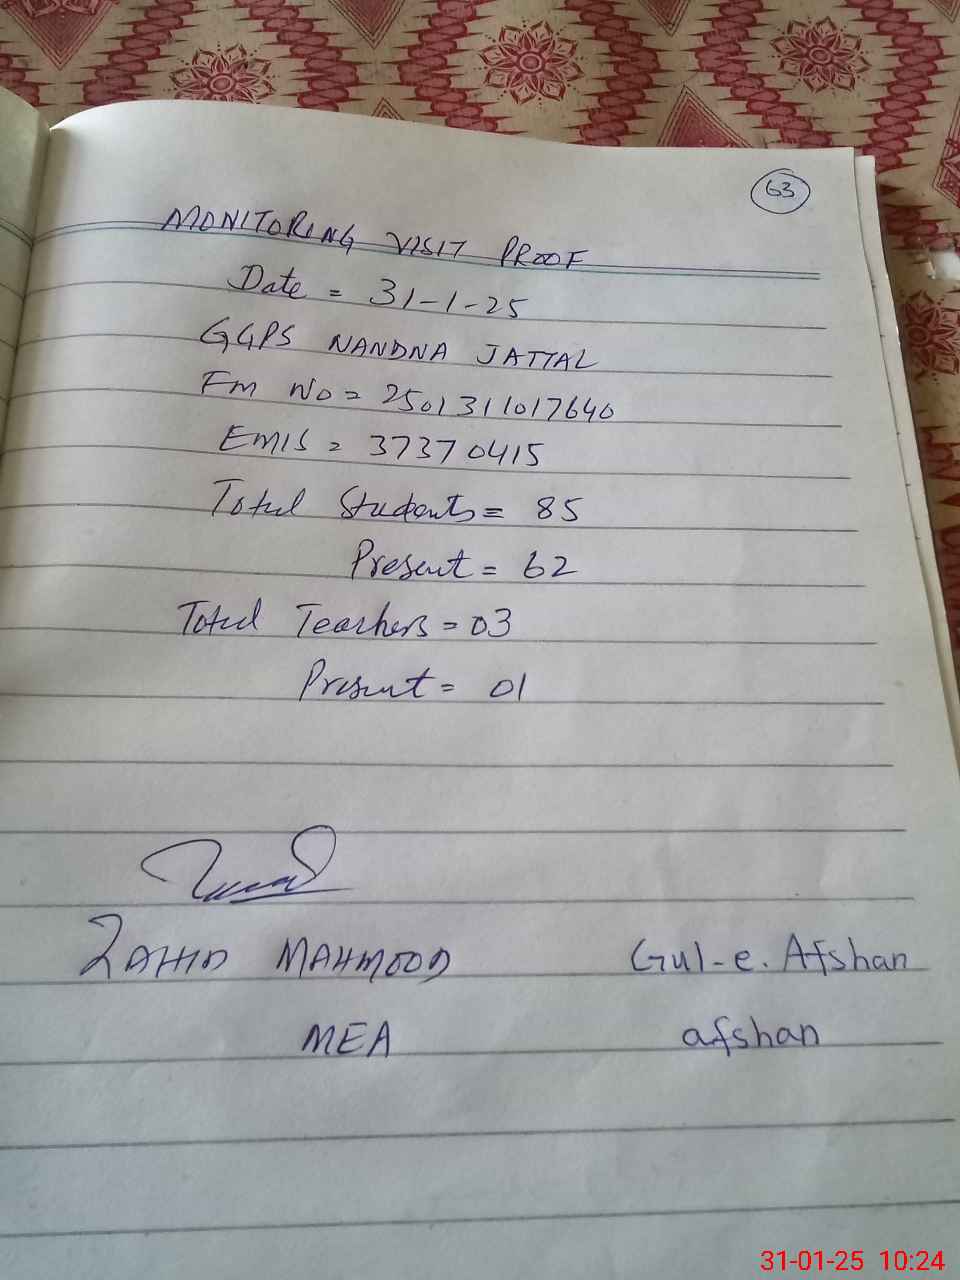 63
MONITORING VISIT PROOF
Date = 31-1-25
GGPS NANDNA JATTAL
Fm No = 2501311017640
EMIS = 37370415
Total Students = 85
Present = 62
Total Teachers = 03
Present = 01
ZAHID MAHMOOD
Gul-e. Afshan
MEA
afshan
31-01-25 10:24